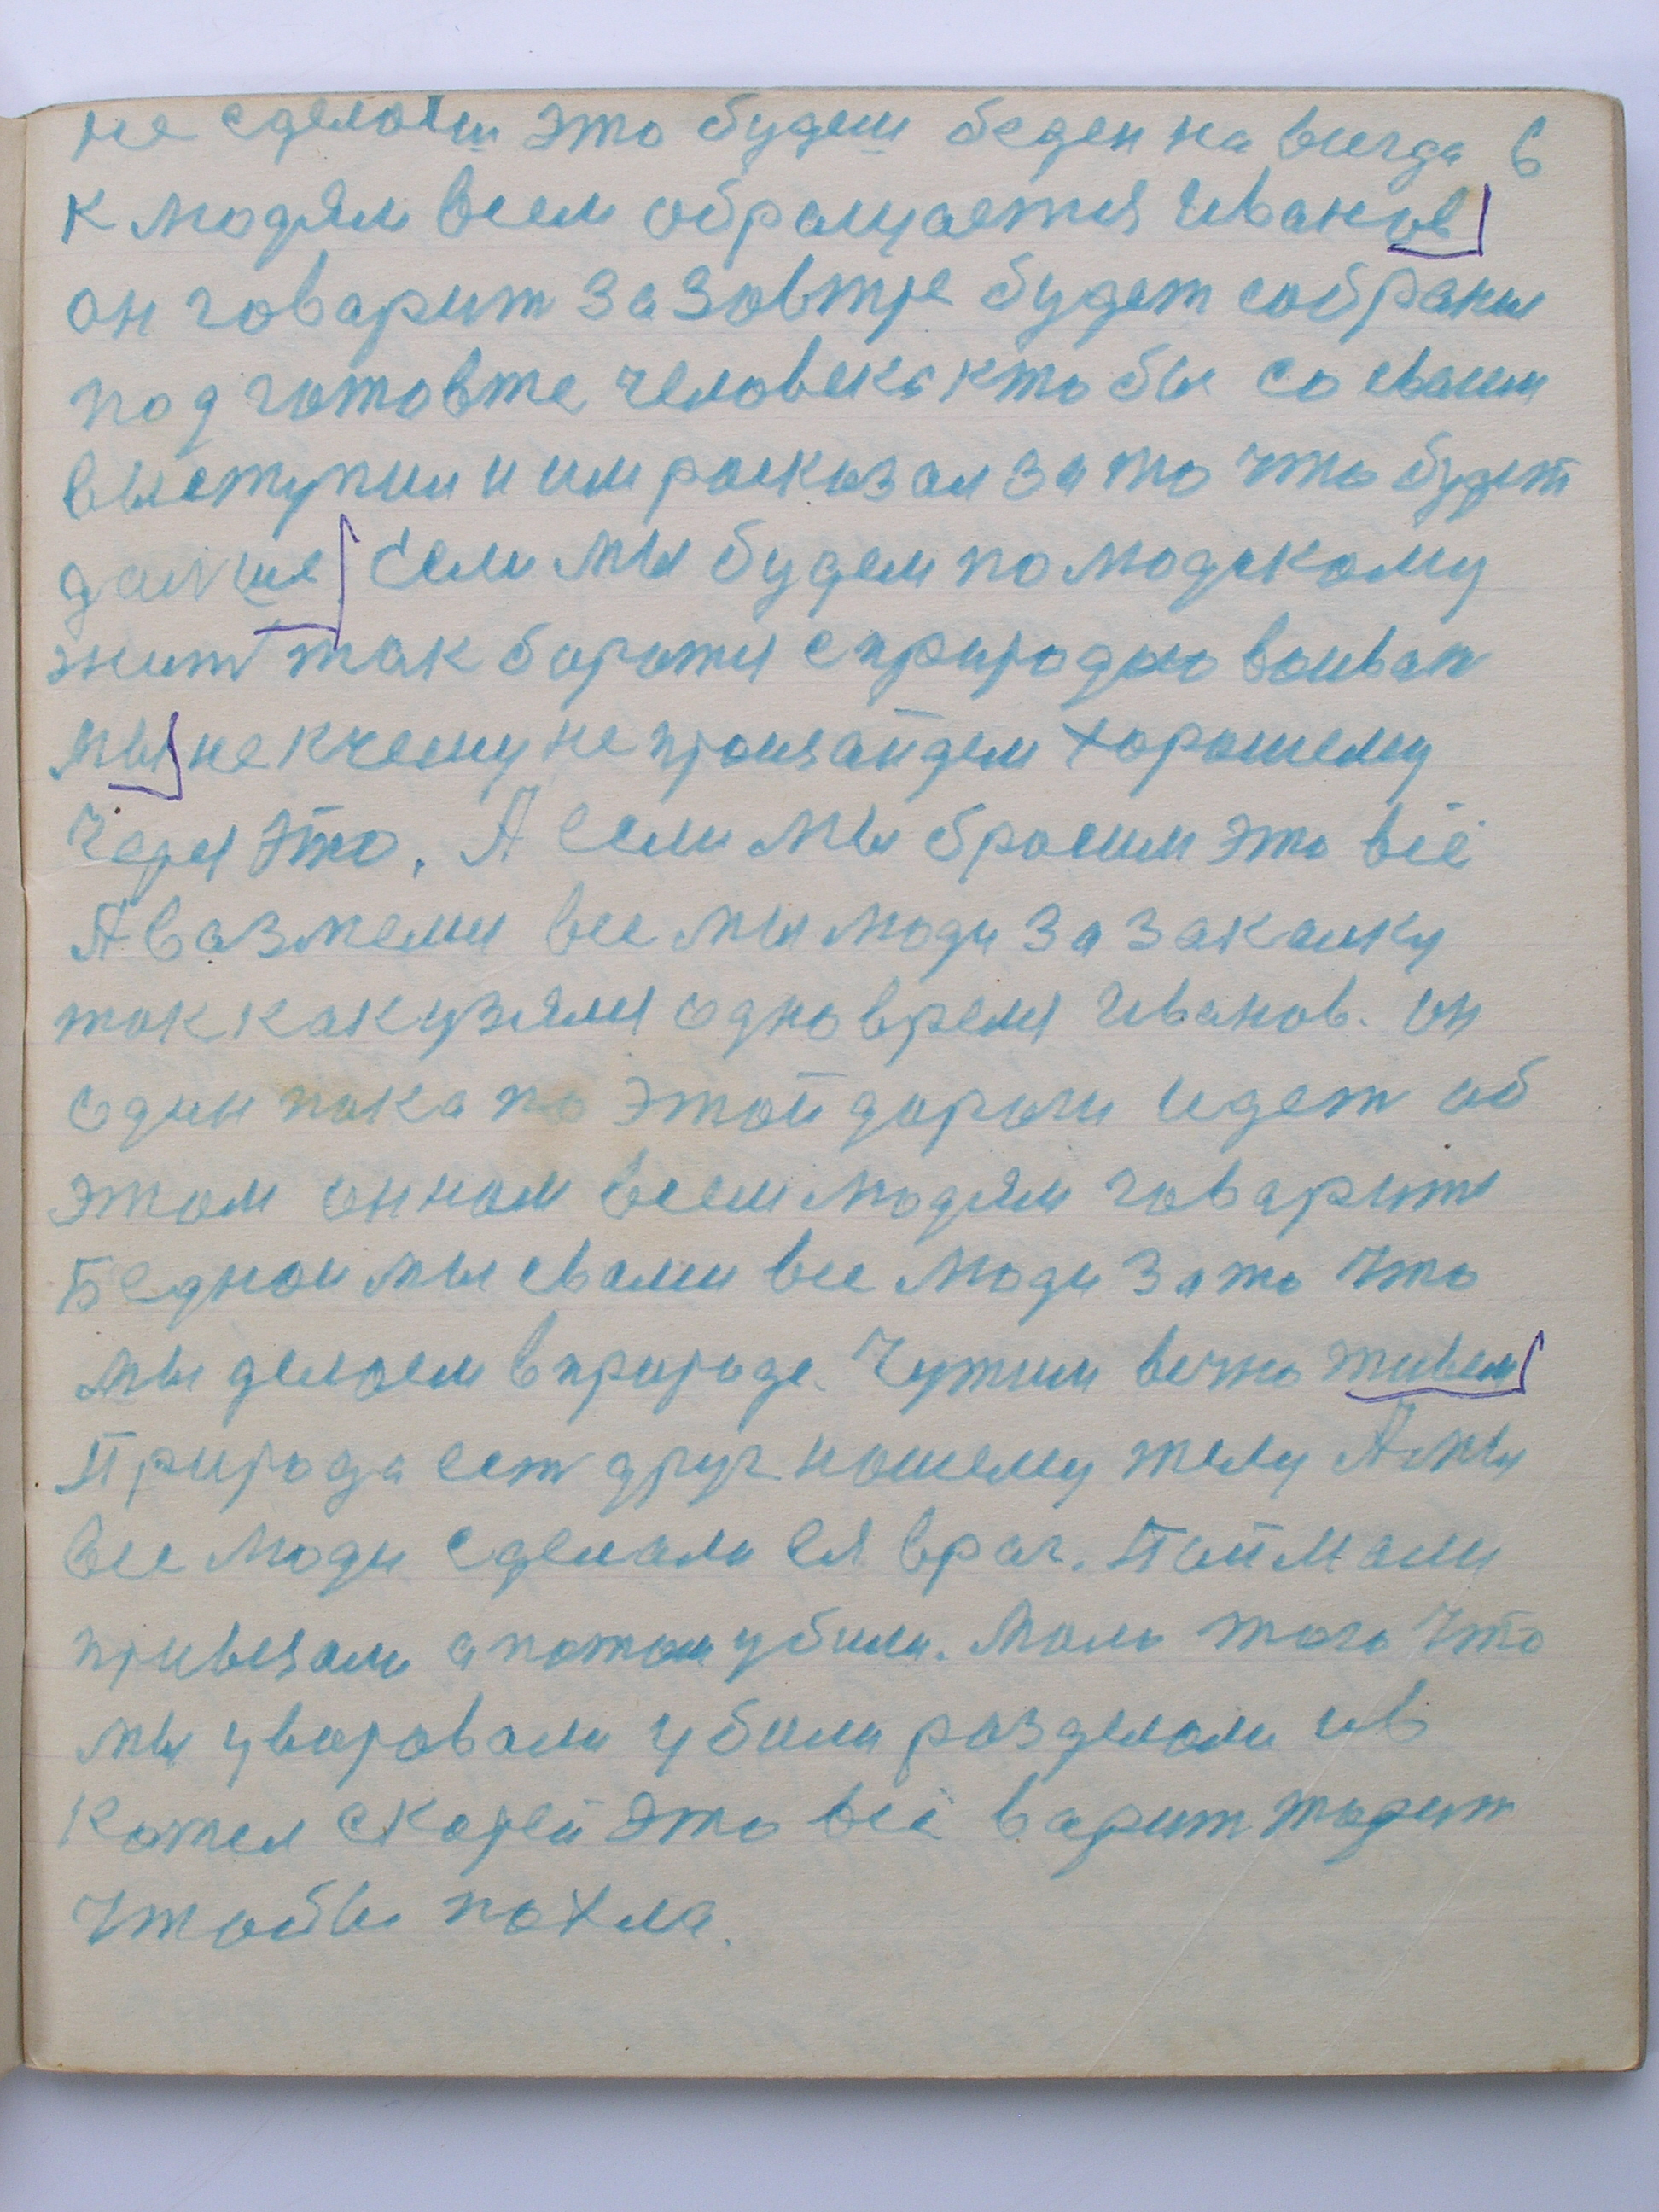 не сделаеш это будеш беден на всегда 6
к людям всем обращается Иванов
он говарит за завтре будет собрания
под готовте человека кто бы со сваим
выступил и им расказал за то что будет
дальше Если мы будем по людскому
жит так боротся с природою воиват
мы не кчему не произайдем хорошему
через это. А если мы бросим это всё
А вазмемы все мы люди за закалку
так как узялся одно время Иванов. он
один пока по этой дороги идет об
этом он нам всем людям говарит
Беднои мы свами все люди зато что
мы делаем в природе. Чужим вечно живем
Природа ест друг нашему телу А мы
все люди сделали ея враг. Поймали
привязали а потом убили. Мало того что
мы уваровали убили разделали и в
котел скорей это всё варит жарит
чтобы пахла.